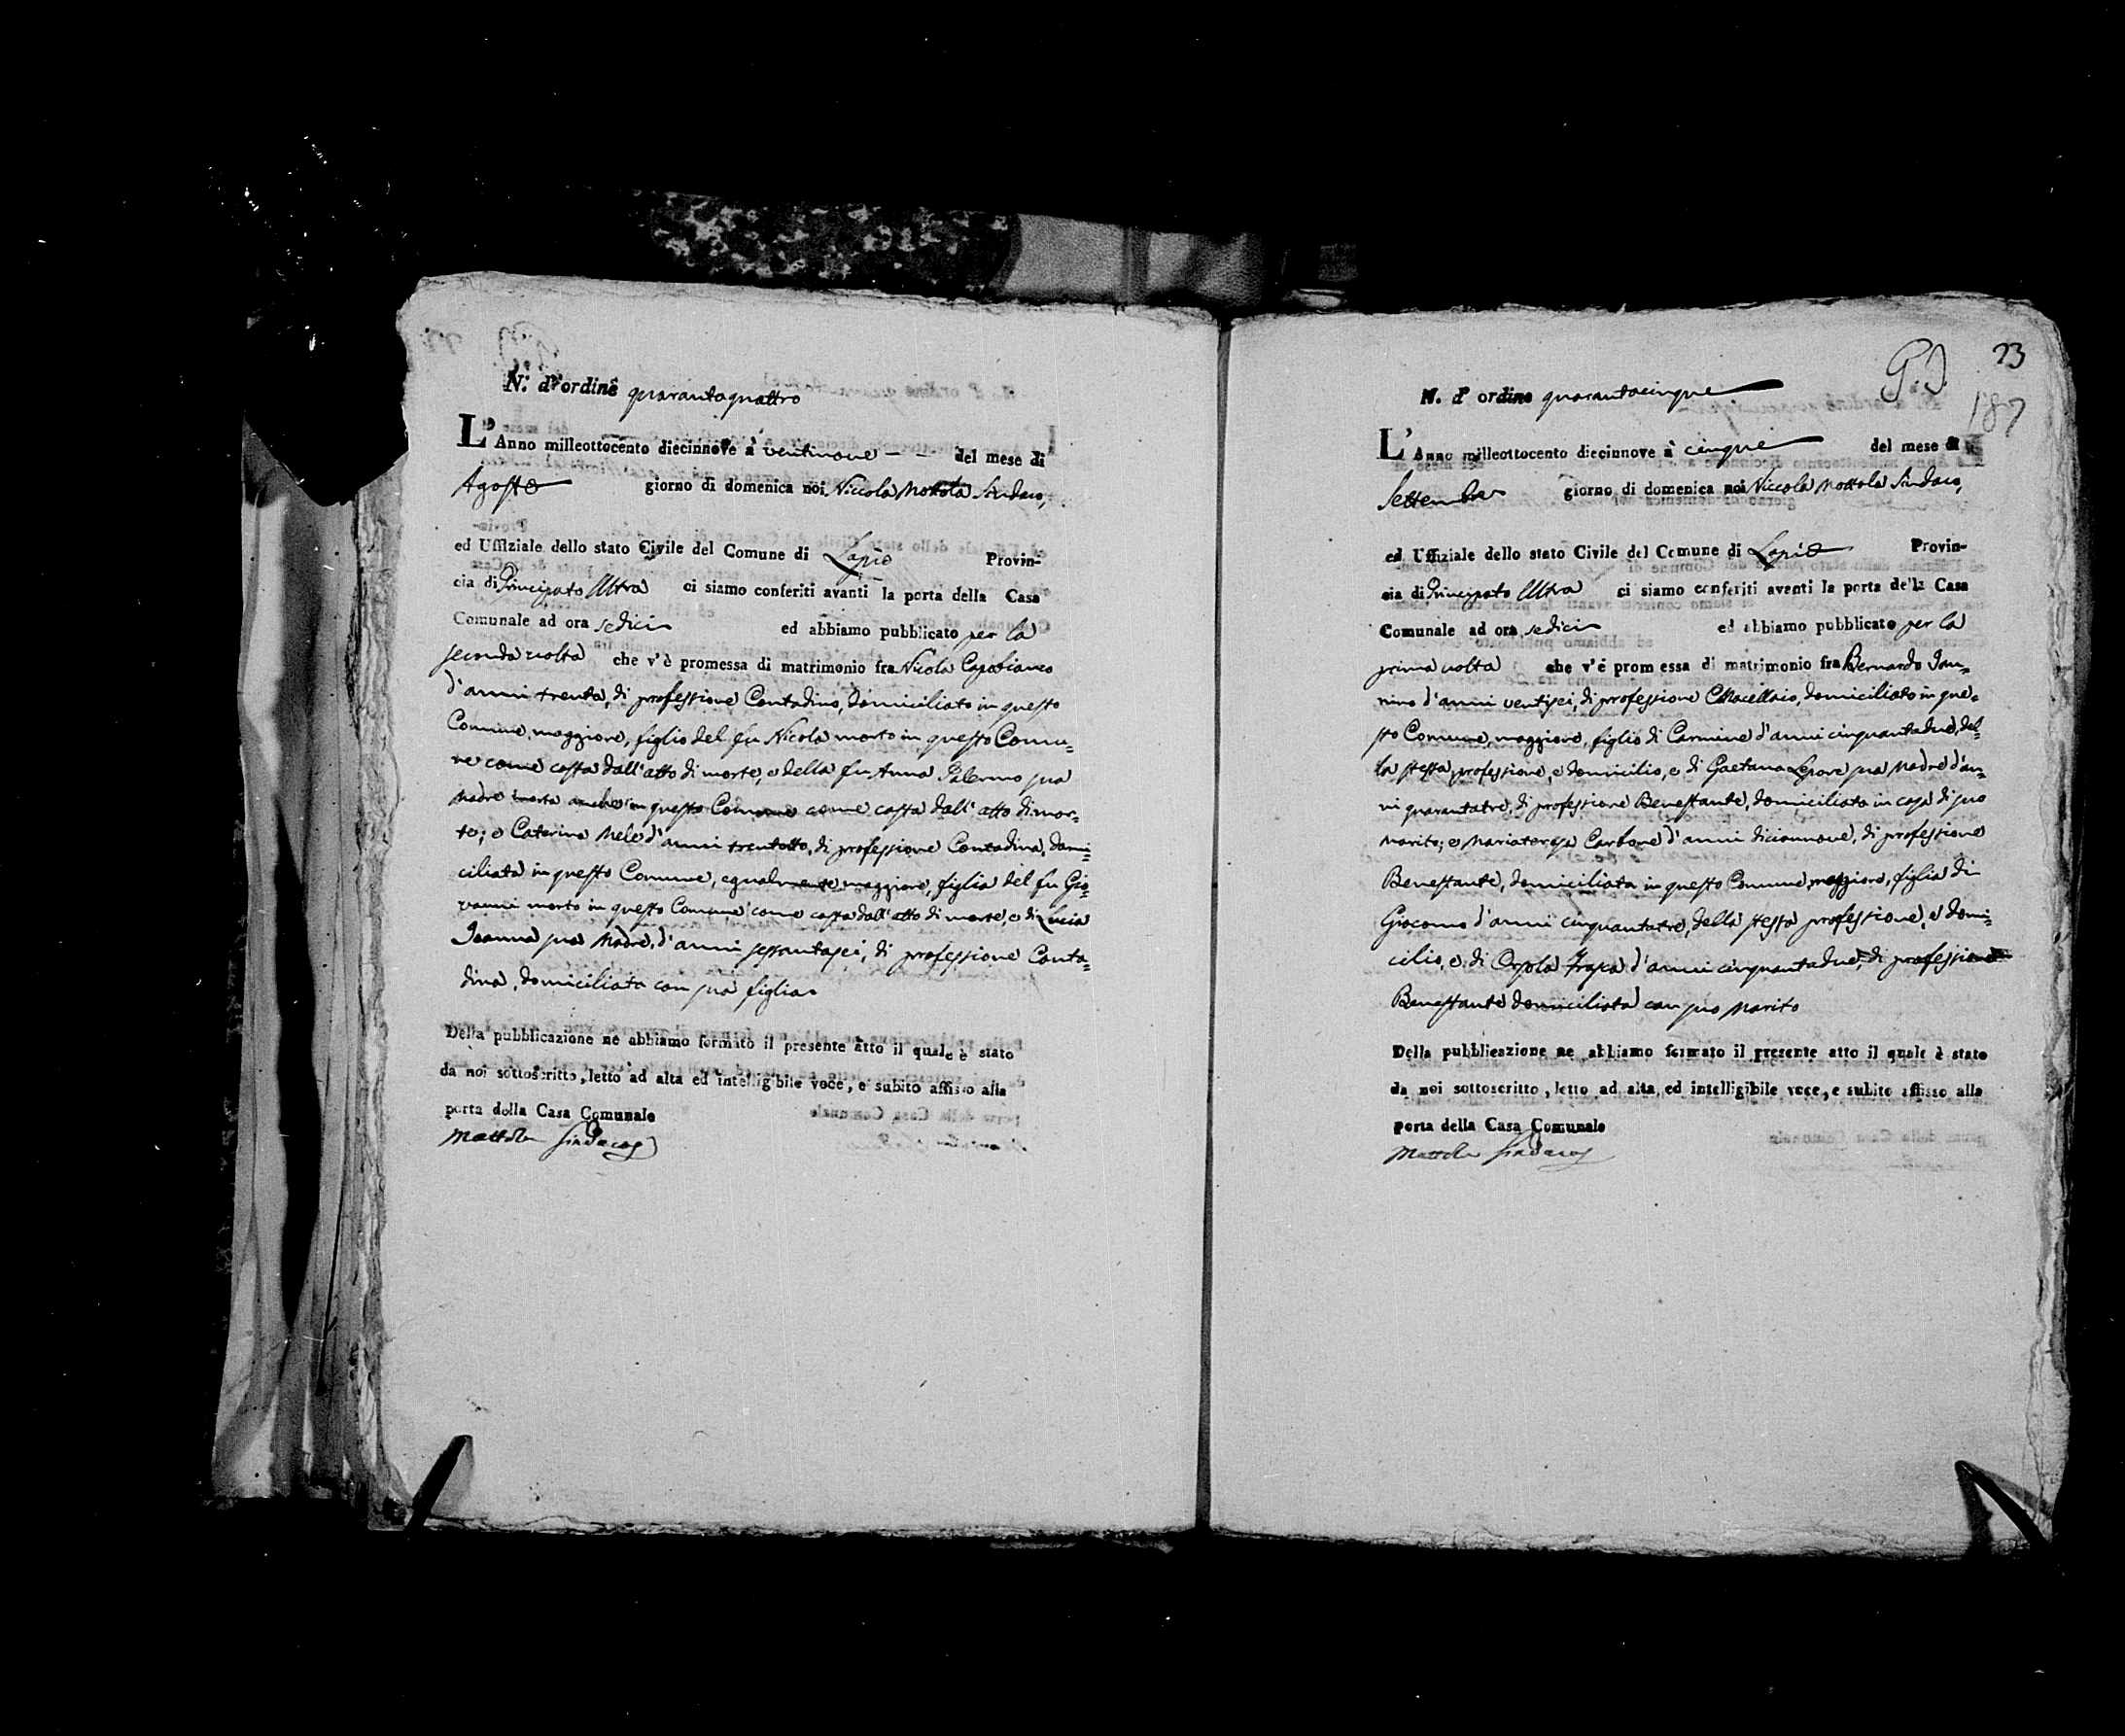 N.º d'ordine quarantaquattro
L'Anno milleottocento diecinnove à ventinove - - del mese di
Agosto giorno di domenica noi Niccola Mottola Sindaco,
ed Uffiziale dello stato Civile del Comune di Lapio Provin-
cia di Principato Ultra ci siamo conferiti avanti la porta della Casa
Comunale ad ora sedici ed abbiamo pubblicato per la
seconda volta che v'è promessa di matrimonio fra Nicola Capobianco
d'anni trenta, di professione Contadino, domiciliato in questo
Comune, maggiore, figlio del fu Nicola morto in questo Comu=
ne come costa dall'atto di morte, e della fu Anna Palermo sua
Madre morta anche in questo Comune come costa dall'atto di mor=
te; e Caterina Mele d'anni trentotto, di professione Contadina, domi=
ciliata in questo Comune, egualmente maggiore, figlia del fu Gio=
vanni morto in questo Comune come costa dall'atto di morte, e di Lucia
Ioanna sua Madre, d'anni sessantasei, di professione Conta=
dina, domiciliata con sua figlia
Della pubblicazione ne abbiamo formato il presente atto il quale è stato
da noi sottoscritto, letto ad alta ed intelligibile voce, e subito affisso alla
porta della Casa Comunale
Mottola Sindaco
23
187
N. d' ordine quarantacinque
L'Anno milleottocento diecinnove à cinque del mese di
Settembre giorno di domenica noi Niccola Mottola Sindaco,
ed Uffiziale dello stato Civile del Comune di Lapio Provin-
cia di Principato Ultra ci siamo conferiti avanti la porta della Casa
Comunale ad ora sedici ed abbiamo pubblicato per la
prima volta che v'è promessa di matrimonio fra Bernardo Ian=
nino d'anni ventisei, di professione Macellaio, domiciliato in que=
sto Comune, maggiore, figlio di Carmine d'anni cinquantadue, del=
la stessa professione, e domicilio, e di Gaetana Lepore sua Madre d'an=
ni quarantatre, di professione Benestante, domiciliata in casa di suo
marito; e Mariateresa Carbone d'anni diciannove, di professione
Benestante, domiciliata in questo Comune, maggiore, figlia di
Giacomo d'anni cinquantatre, della stessa professione, e domi=
cilio, e di Orsola d'anni cinquantadue, di professione
Benestante domiciliata con suo Marito
Della pubblicazione ne abbiamo formato il presente atto il quale è stato
da noi sottoscritto, letto ad alta ed intelligibile voce, e subito affisso alla
porta della Casa Comunale
Mottola Sindaco